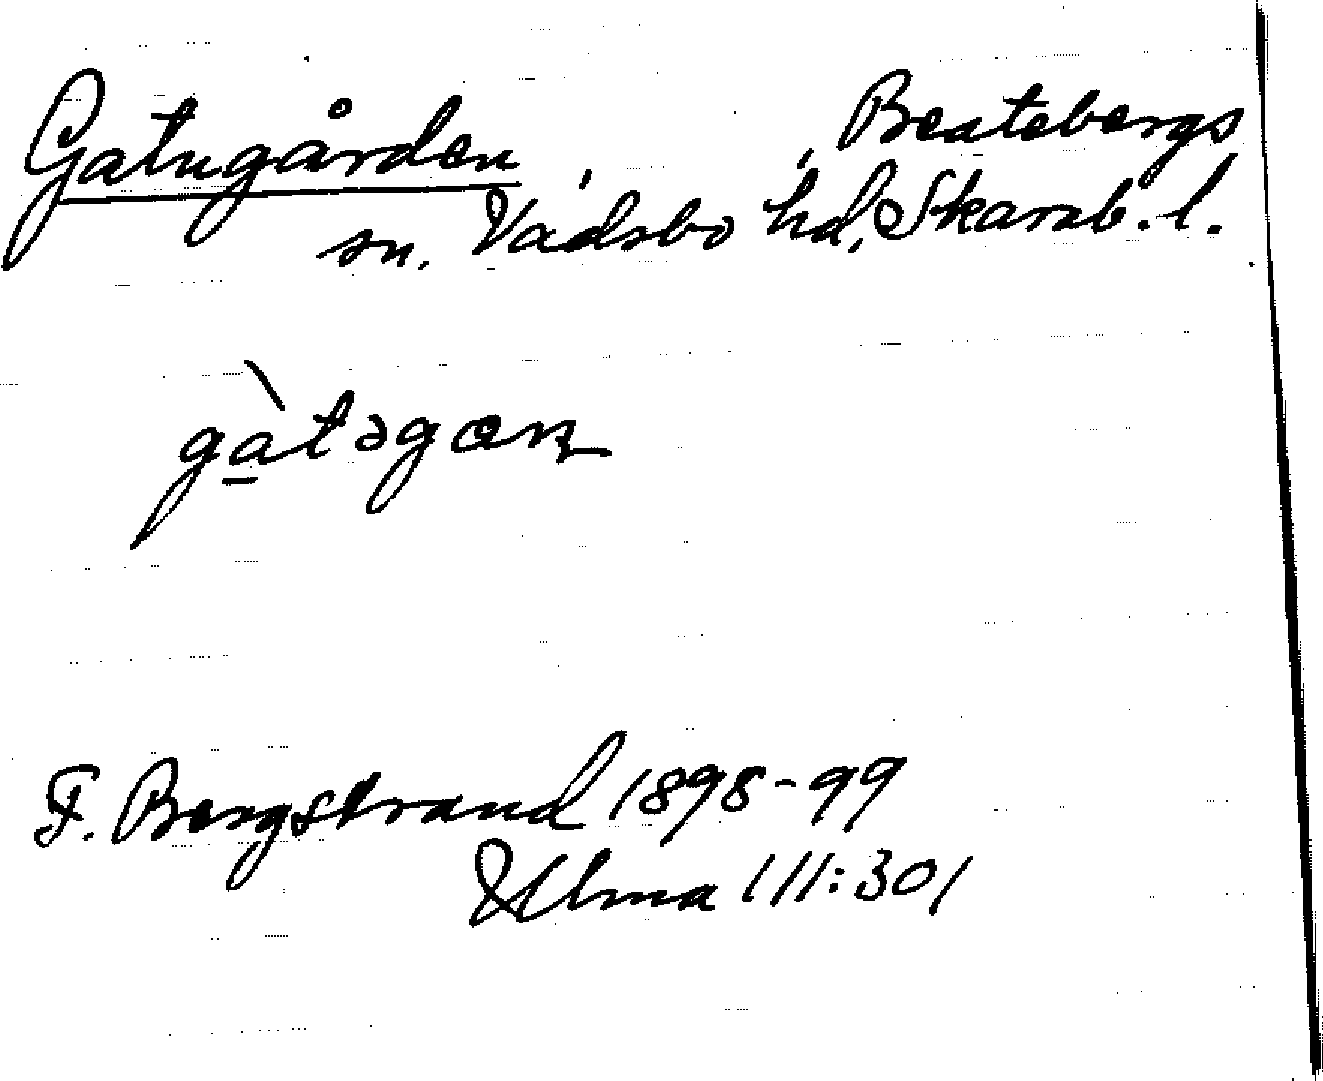 Gatugården, Beatebergs
sn. Vadsbo hd, Skarab. l.
gàtəgɑɳ
F. Bergstrand 1898-99
Ulma 111:301